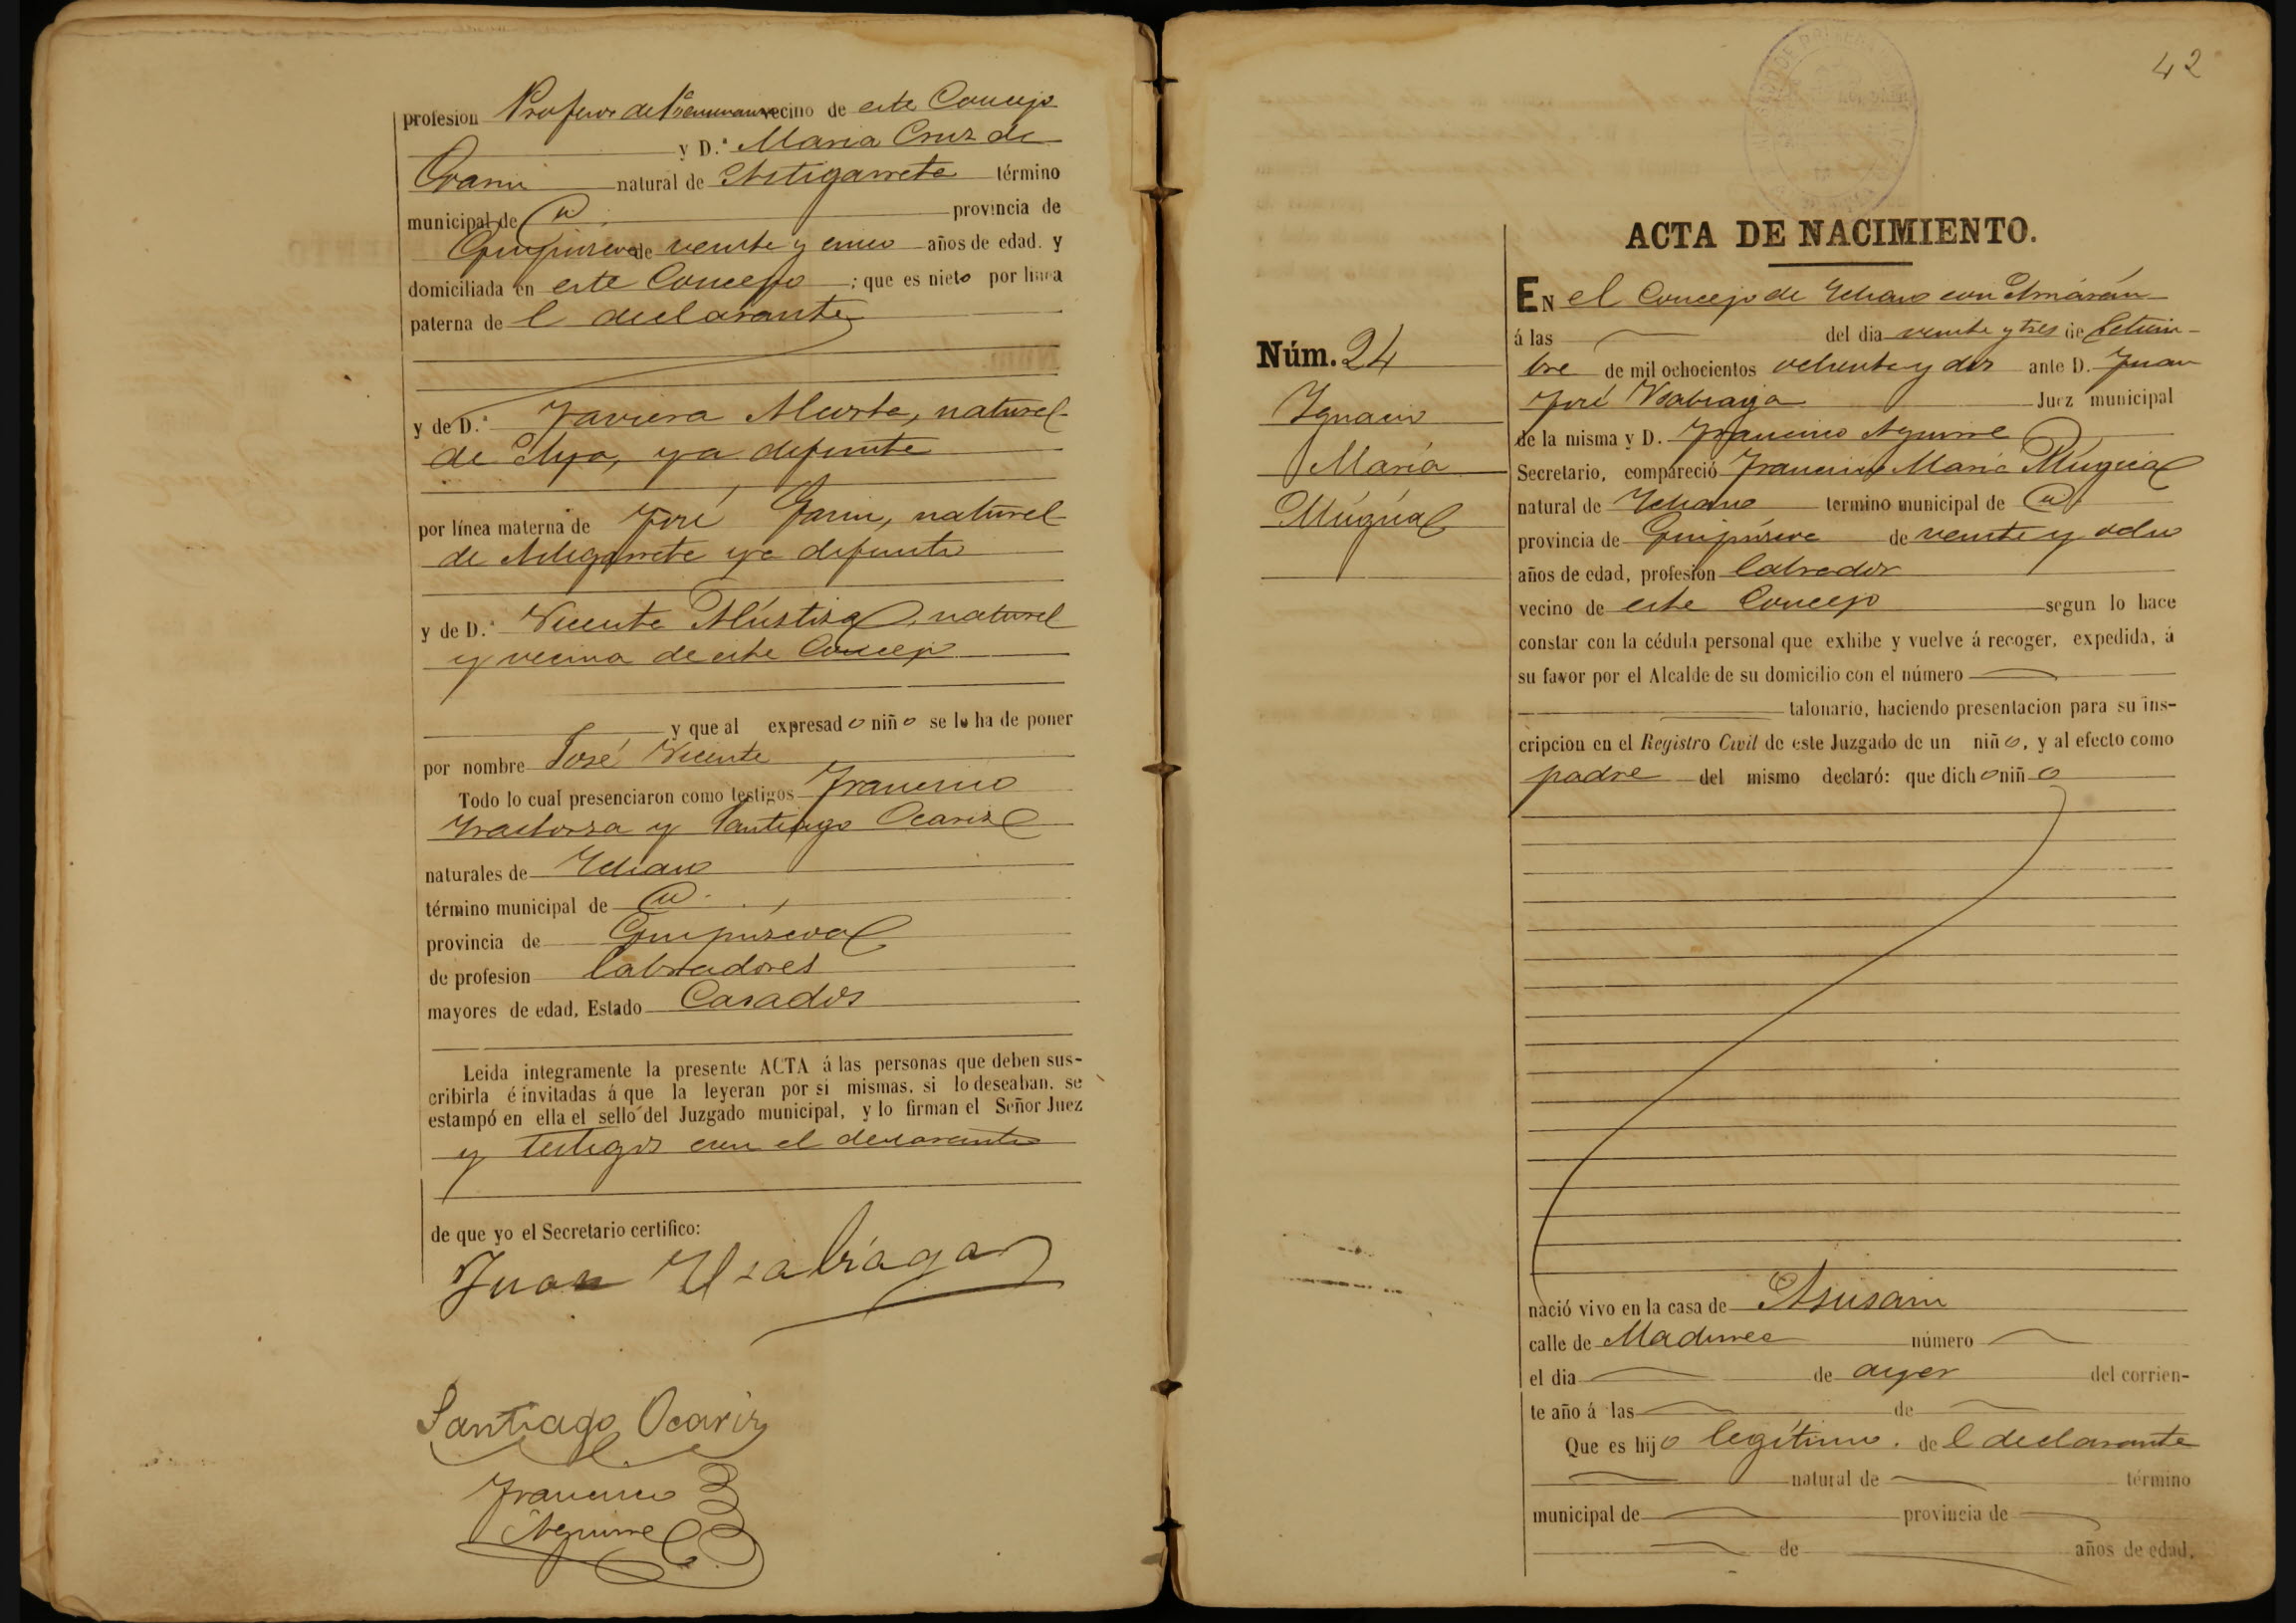 profesion Profesor de 1.ª vecino de este Concejo
y D.ª Maria Cruz de
Garin natural de Astigarreta término
municipal de id. provincia de
Guipúzcoa de veinte y cinco años de edad. y
domiciliada en este Concejo ; que es nieto por línea
paterna de l declarante
y de D.ª Javiera natural
de ya difunta
por línea materna de José Garin, natural
de Astigarreta ya difunto
y de D.ª Vicenta natural
y vecina de este Concejo
y que al expresado niño se le ha de poner
por nombre José Vicente
Todo lo cual presenciaron como testigos Francisco
Irastorza y Santiago Ocariz
naturales de Ichaso
término municipal de id.
provincia de Guipúzcoa
de profesion labradores
mayores de edad, Estado Casados
Leida integramente la presente ACTA á las personas que deben sus-
cribirla é invitadas á que la leyeran por si mismas, si lo deseaban, se
estampó en ella el sello del Juzgado municipal, y lo firman el Señor Juez
y testigos con el declarante
de que yo el Secretario certifico:
Juan Usabiaga
Santiago Ocariz
Francisco
Aguirre
42
ACTA DE NACIMIENTO.
Núm. 24
Ignacio
María
Múgica
EN el Concejo de Ichaso con
á las del dia veinte y tres de Setiem-
bre de mil ochocientos ochenta y dos ante D. Juan
José Usabiaga Juez municipal
de la misma y D. Francisco Aguirre
Secretario, compareció Francisco Maria Múgica
natural de Ichaso termino municipal de id.
provincia de Guipúzcoa de veinte y ocho
años de edad, profesion labrador
vecino de este Concejo segun lo hace
constar con la cédula personal que exhibe y vuelve á recoger, expedida, á
su favor por el Alcalde de su domicilio con el número
talonario, haciendo presentacion para su ins-
cripcion en el Registro Civil de este Juzgado de un niño, y al efecto como
padre del mismo declaró: que dicho niño
nació vivo en la casa de
calle de número
el dia de ayer del corrien-
te año á las de
Que es hijo legítimo. de l declarante
natural de término
municipal de provincia de
de años de edad,